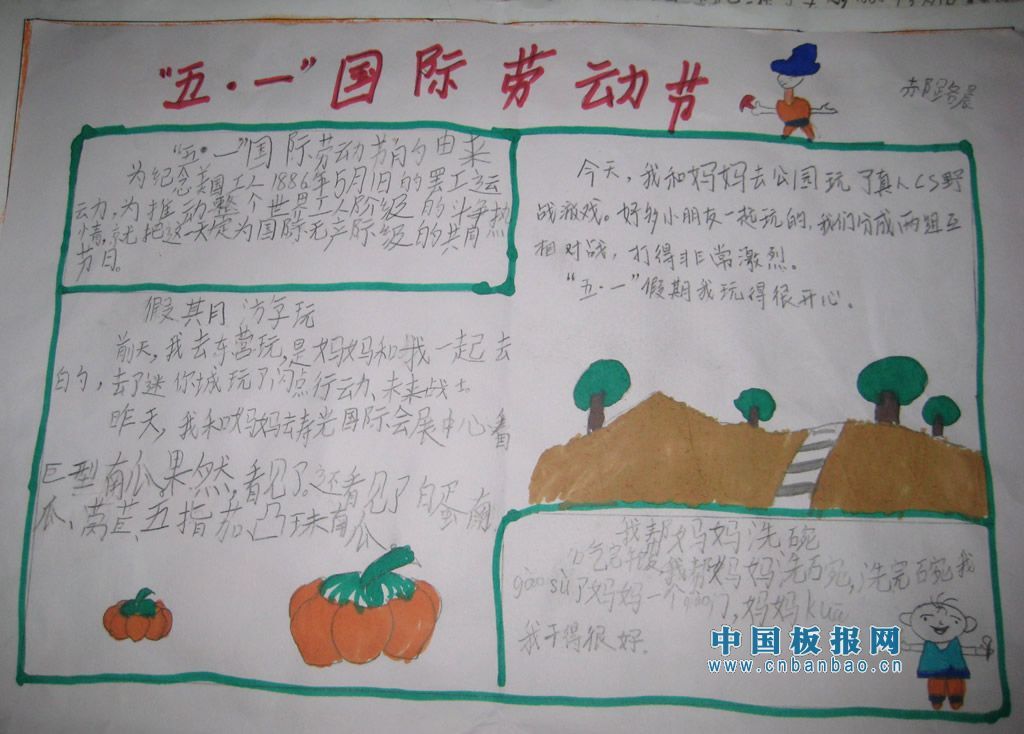 "五·一"国际劳动节
"五·一"国际劳动节的由来
为纪念美国工人1886年5月1日的罢工运
动,为推动整个世界工人阶级的斗争热
情,就把这一天定为国际无产阶级的共同
节日。
假期访学玩
前天,我去东营玩,是妈妈和我一起去
的,去了迷你城玩了闪点行动、未来战士
昨天,我和妈妈去寿光国际会展中心看
巨型南瓜。果然,看见了。还看见了白蛋南
瓜、莴苣、五指茄、凸珠南瓜
今天,我和妈妈去公园玩了真人CS野
战游戏。好多小朋友一起玩的,我们分成两组互
相对战,打得非常激烈。
"五·一"假期我玩得很开心。
我帮妈妈洗碗
吃完午饭,我帮妈妈洗碗,洗完碗我
gào sù了妈妈一个 门,妈妈kuā
我干得很好。
中国板报网
www.cnbanbao.cn